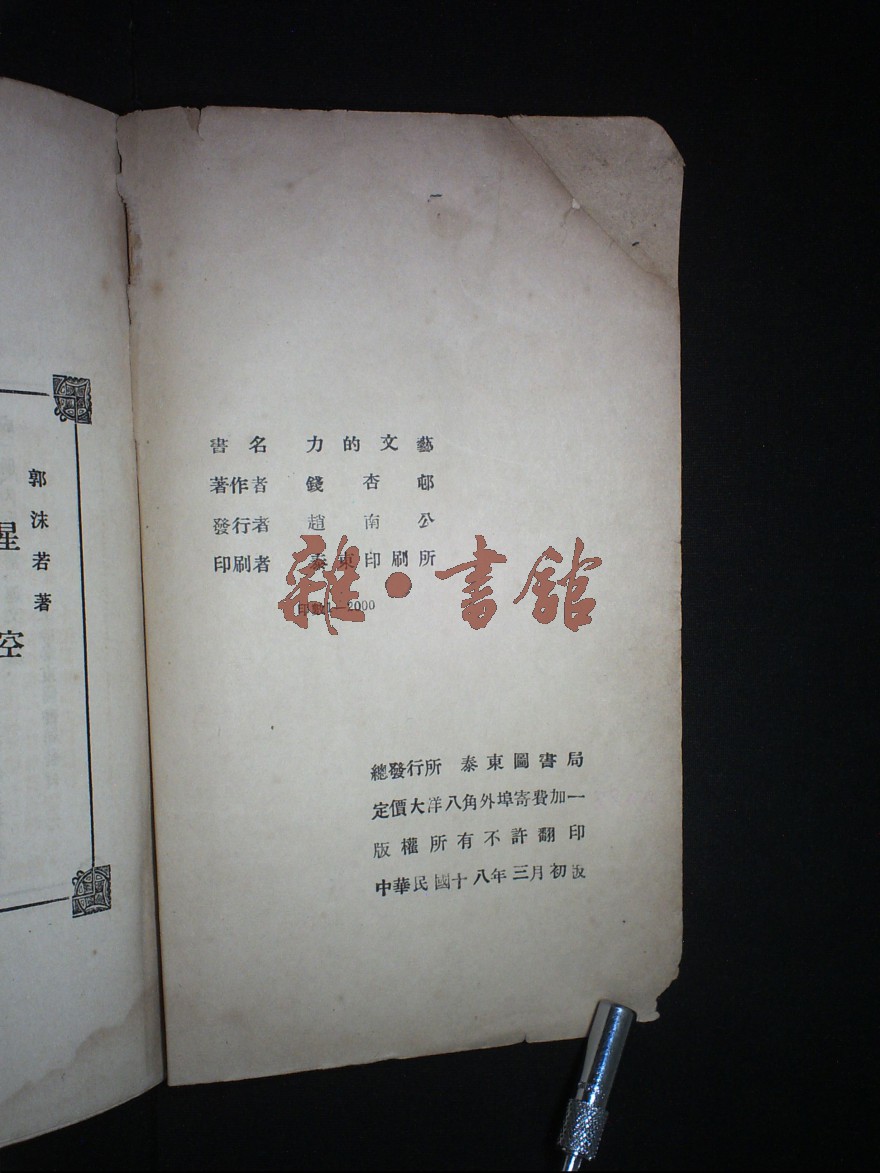 郭沫若著
星空
書名 力的文藝
著作者 錢杏邨
發行者 趙南公
印刷者 泰東印刷所
印數1—2000
雜·書館
總發行所 泰東圖書局
定價大洋八角外埠寄費加一
版權所有不許翻印
中華民國十八年三月初版